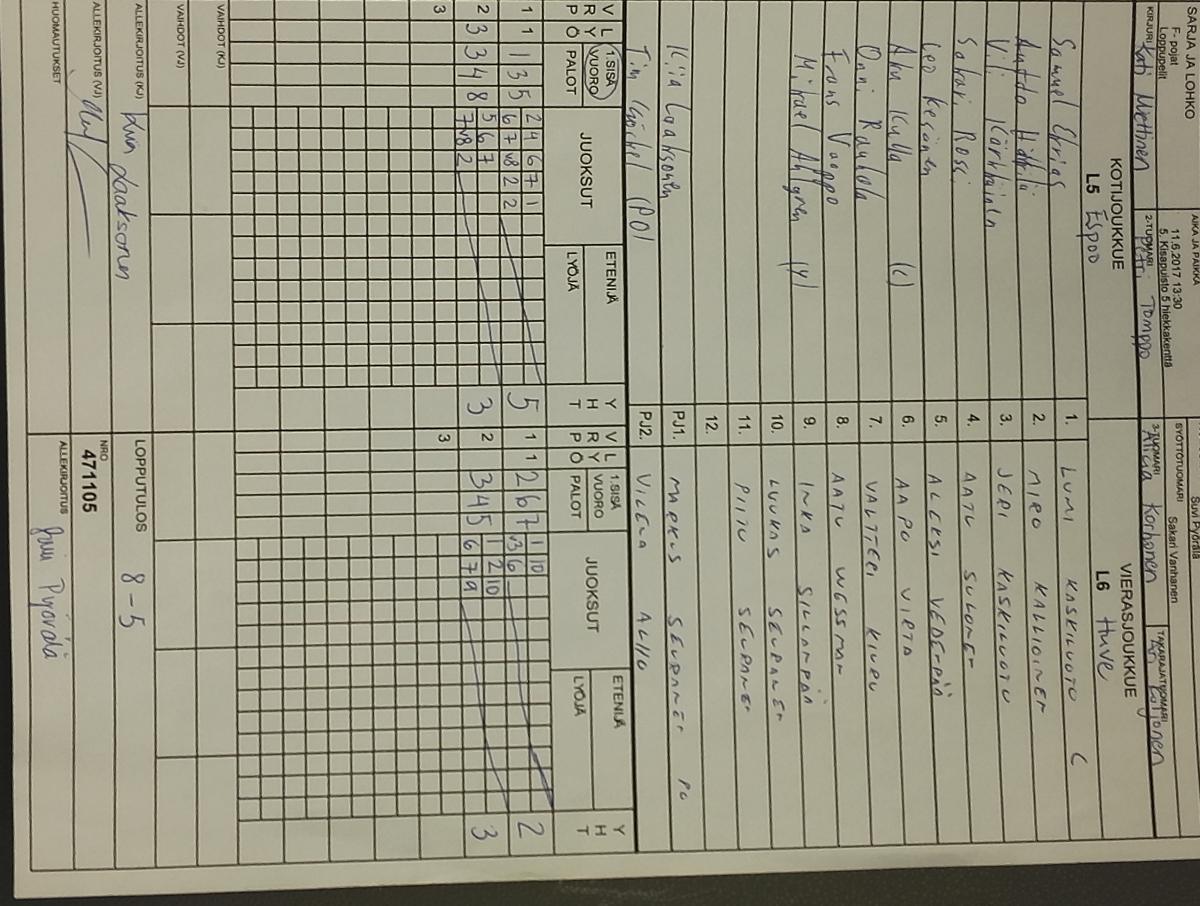 SARJA JA LOHKO
F- pojat
Loppupelit
AIKA JA PAIKKA
11.6.2017 13:30
5 Kisapuisto 5 hiekkakenttä
SYÖTTÖTUOMARI
Sakari Vanhanen
Suvi Pyörälä
KIRJURI Kati Miettinen
2-TUOMARI Petri Tomppo
3-TUOMARI Korhonen
TAKARAJATUOMARI
KOTIJOUKKUE
L5 Espoo
VIERASJOUKKUE
L6 Huve
1. LUMI KASKILUOTO C
2. MIRO KALLIOINEN
Vili Kärkkäinen 3. JERI KASKILUOTO
Sakari Rossi 4. AATU SULONEN
Leo Keränen 5. ALEKSI VEDENPÄÄ
Aku Kulla (C) 6. AAPO VIRTA
Onni Rauhala 7. VALTTERI KIVRU
Frans Vuoppo 8. AATU WESSMAN
Mikael Ahlgren (4) 9. INKA SILLANPÄÄ
10. LUUKAS SEURANEN
11. PIITU SEURANEN
12.
Kiia Laaksonen PJ1. MARKUS SEURANEN PO
PJ2. VILENA
V R P L Y Ö 1.SISÄ VUORO PALOT JUOKSUT ETENIJÄ LYÖJÄ Y H T V R P L Y Ö 1.SISÄ VUORO PALOT JUOKSUT ETENIJÄ LYÖJÄ Y H T
1 1 1 3 5 2 4 6 7 1 5 1 1 2 6 7 1 10 2
6 7 V8 2 2 V3 6
2 3 3 4 8 5 6 7 3 2 3 4 5 1 2 10 3
7 V8 2 6 7 9
3 3
VAIHDOT (KJ)
VAIHDOT (VJ)
ALLEKIRJOITUS (KJ) Kiia Laaksonen
LOPPUTULOS 8 - 5
ALLEKIRJOITUS (VJ)
NRO
471105
HUOMAUTUKSET
ALLEKIRJOITUS Suvi Pyörälä